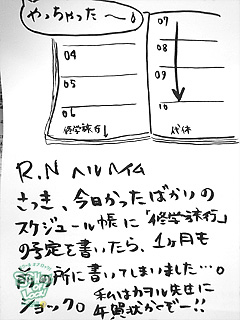 やっちゃった〜。
04
05
06
修学旅行↓
07
08
09
10
代休
R.N ヘルヘイム
さっき、今日かったばかりの
スケジュール帳に「修学旅行」
の予定を書いたら、1ヶ月も
前の所に書いてしまいました…。
ショック。
私はカヲル先生に
年賀状かくぞー!!